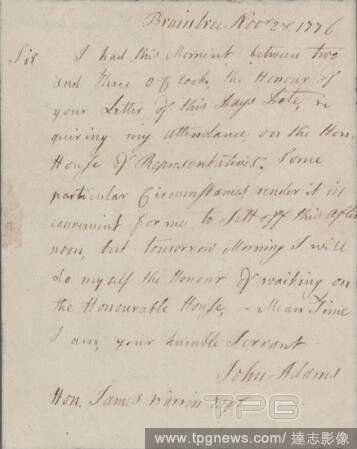 Braintree Novr 28 1776
Sir I had this Moment between two
and three O Clock, the Honour of
your Letter of this Days Date, re
quiring my attendance on the Hon.
House of Representatives. Some
particular Circumstances render it in
convenient for me to sett off this After
noon, but tomorrow Morning I will
do myself the Honour of waiting on
the Honourable House, — Mean Time
I am, your humble Servant
John Adams
Hon. James Warren Esqr
TPG
www.tpgnews.com / 達志影像